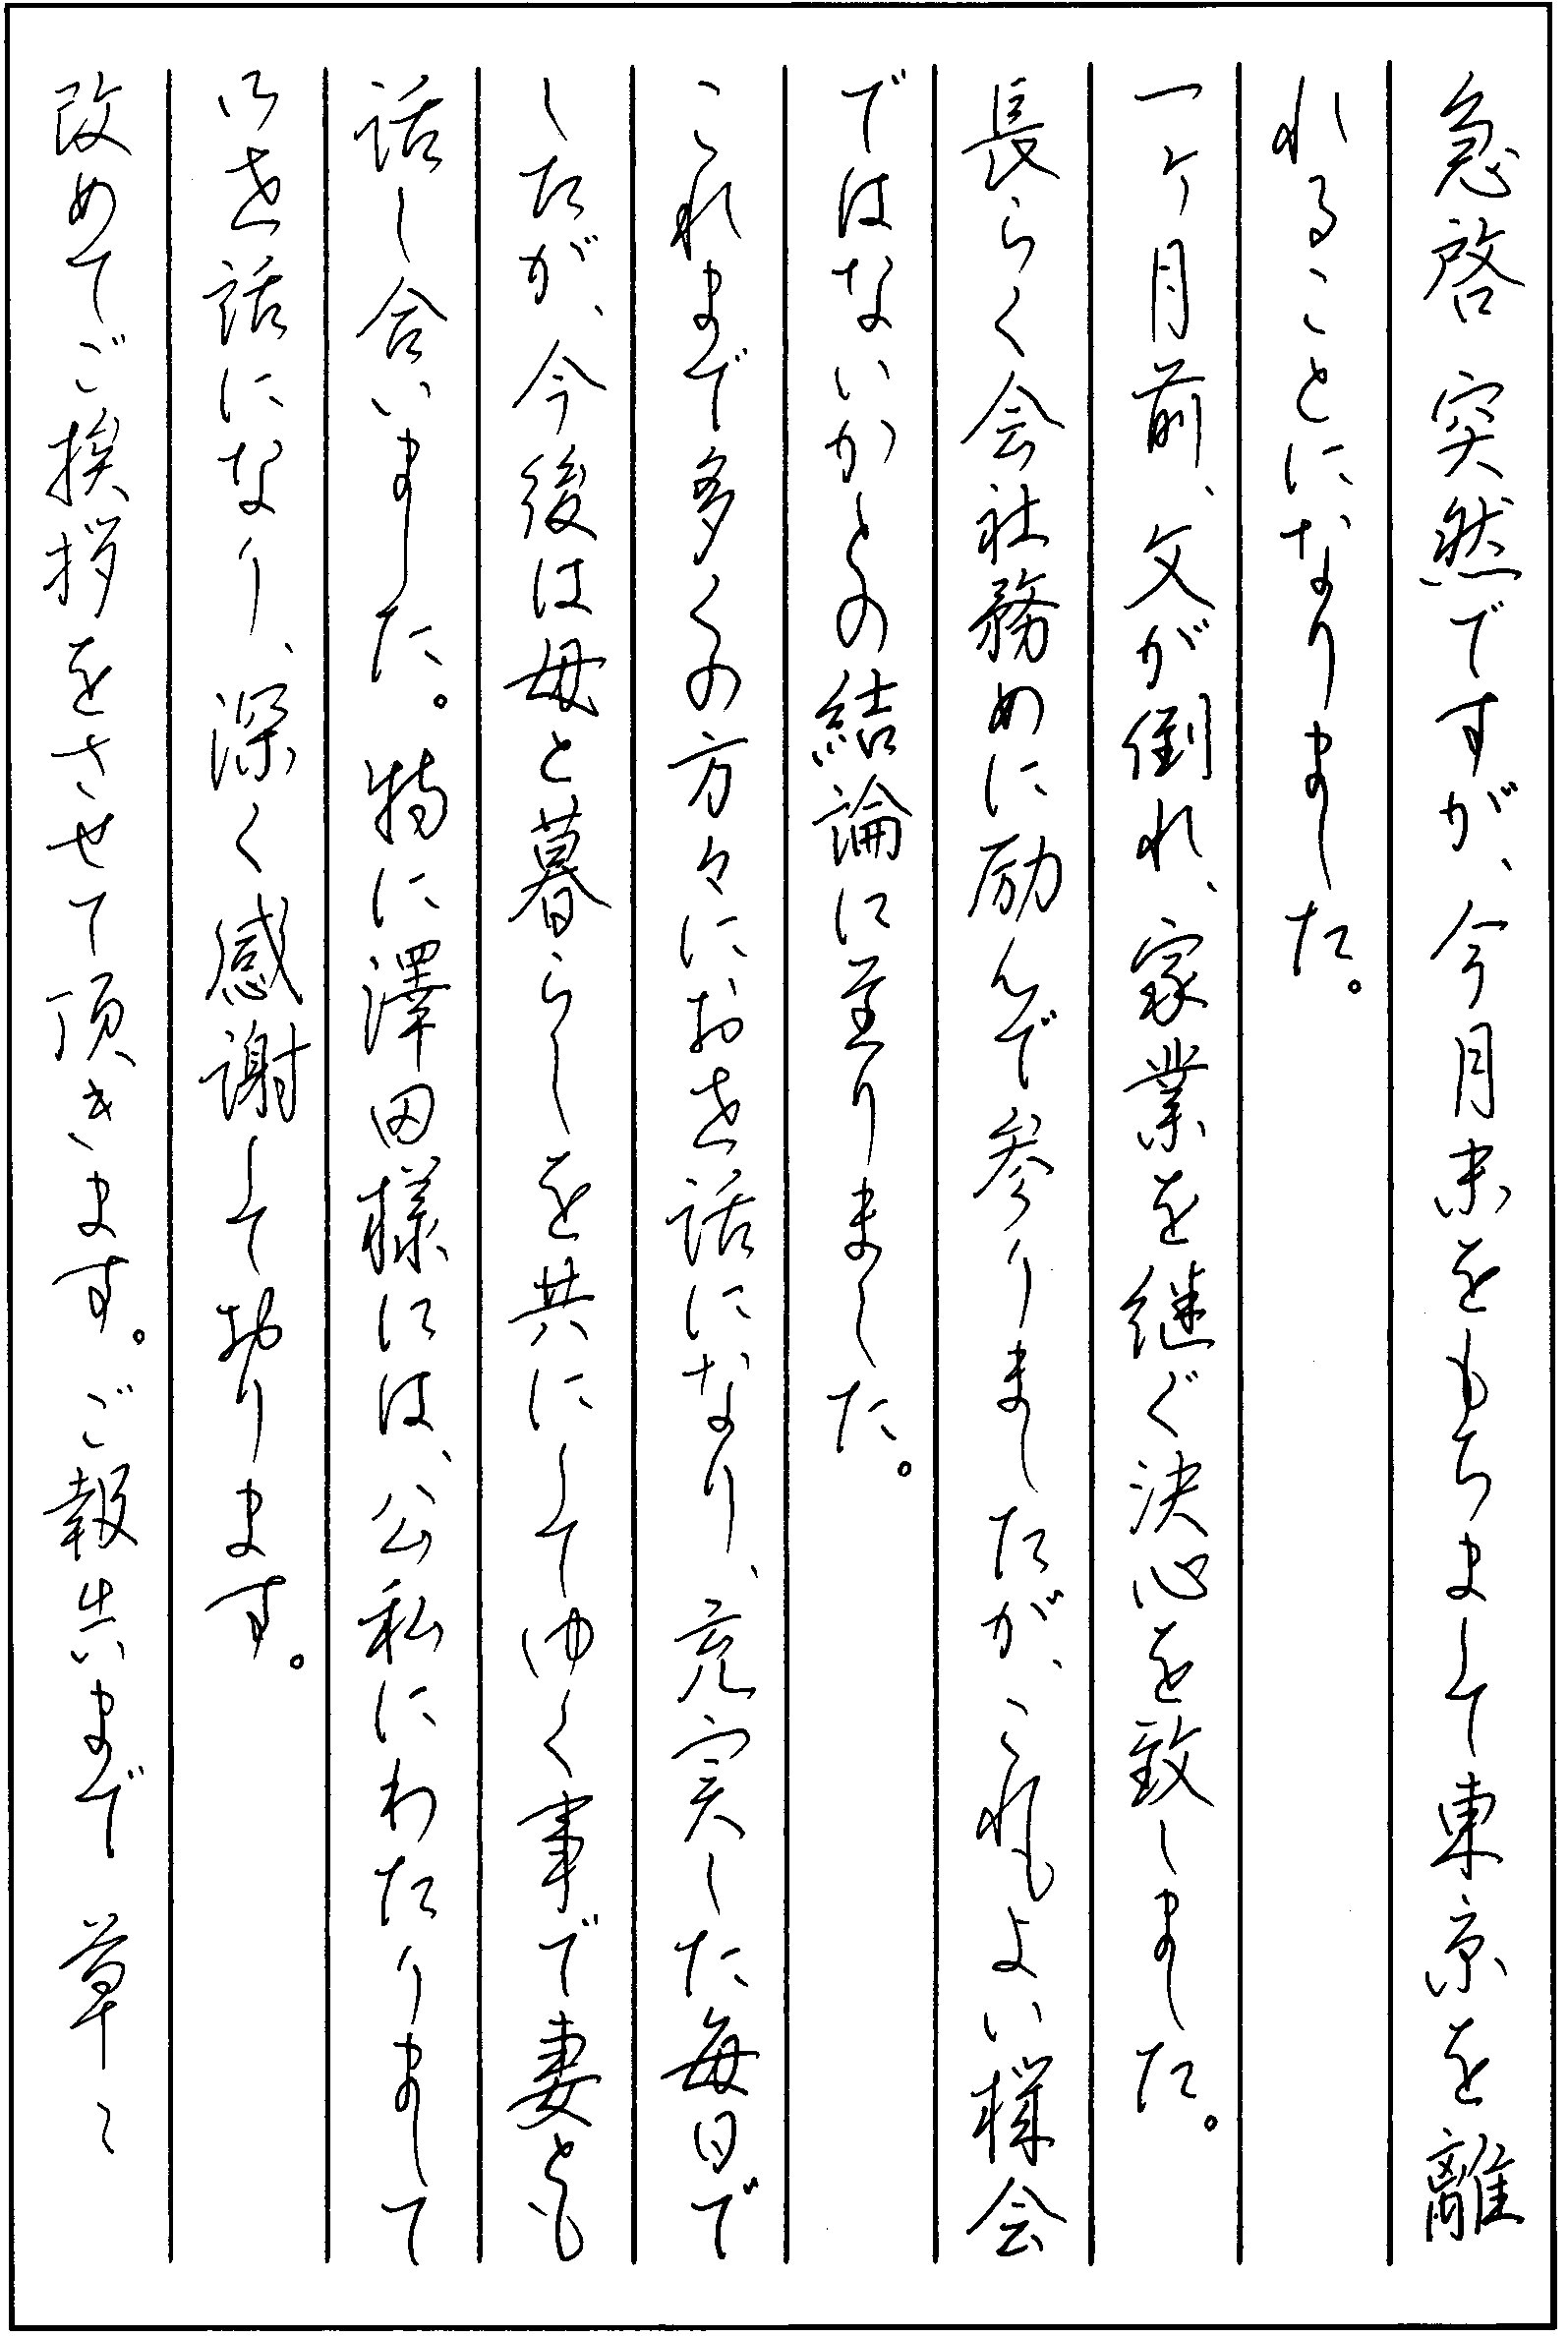 急啓 突然ですが、今月末をもちまして東京を離
れることになりました。
一ヶ月前、父が倒れ、家業を継ぐ決心を致しました。
長らく会社務めに励んで参りましたが、これもよい機会
ではないかとの結論に至りました。
これまで多くの方々にお世話になり、充実した毎日で
したが、今後は母と暮らしを共にしてゆく事で妻とも
話し合いました。特に澤田様には、公私にわたりまして
御世話になり、深く感謝しております。
改めてご挨拶をさせて頂きます。ご報告まで 草々